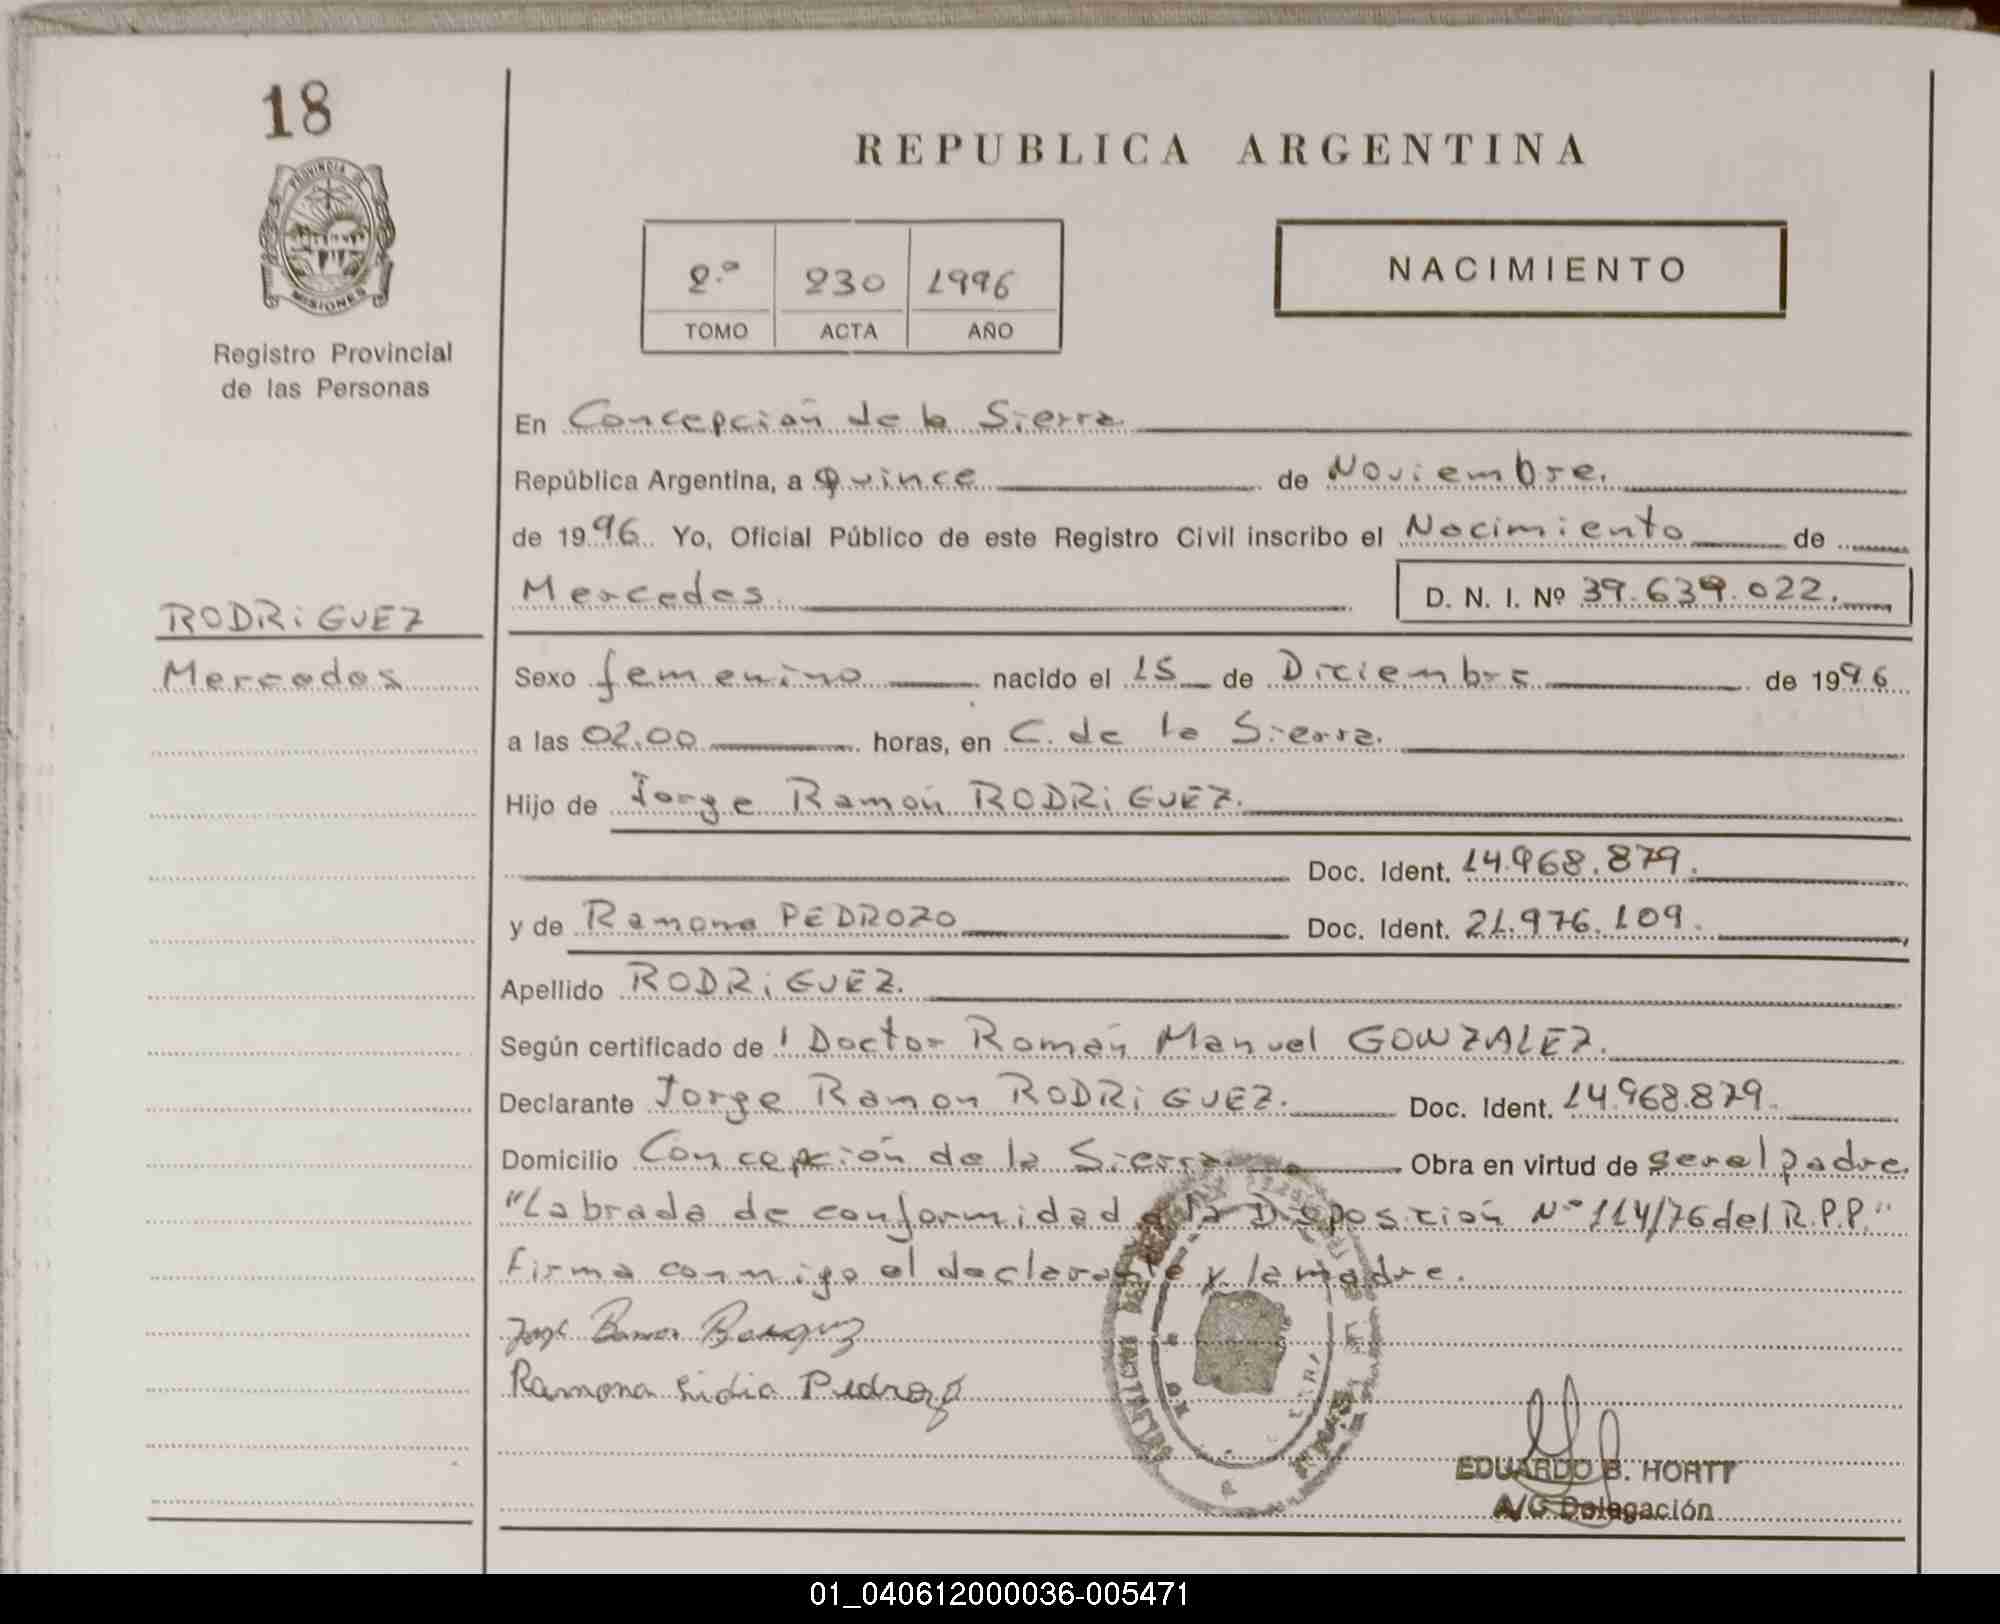 18
REPUBLICA ARGENTINA
PROVINCIA DE
MISIONES
Registro Provincial
de las Personas
2.º 230 1996
TOMO ACTA AÑO
NACIMIENTO
En Concepción de la Sierra
República Argentina, a Quince de Noviembre.
de 1996. Yo, Oficial Público de este Registro Civil inscribo el Nacimiento de
Mercedes. D. N. I. Nº 39.639.022.
RODRiGUEZ
Mercedes
Sexo femenino nacido el 15 de Diciembre de 1996
a las 02.00 horas, en C. de la Sierra.
Hijo de Jorge Ramón RODRiGUEZ.
Doc. Ident. 14.968.879.
y de Ramona PEDROZO Doc. Ident. 21.976.109.
Apellido RODRiGUEZ.
Según certificado de l Doctor Román Manuel GONZALEZ.
Declarante Jorge Ramon RODRiGUEZ. Doc. Ident. 14.968.879.
Domicilio Concepción de la Sierra Obra en virtud de ser el padre.
"Labrada de conformidad a la Disposición Nº 114/76 del R.P.P."
Firma conmigo el declarante y la madre.
Ramona Lidia Pedrozo
EDUARDO B. HORTT
A/C Delegación
01_040612000036-005471